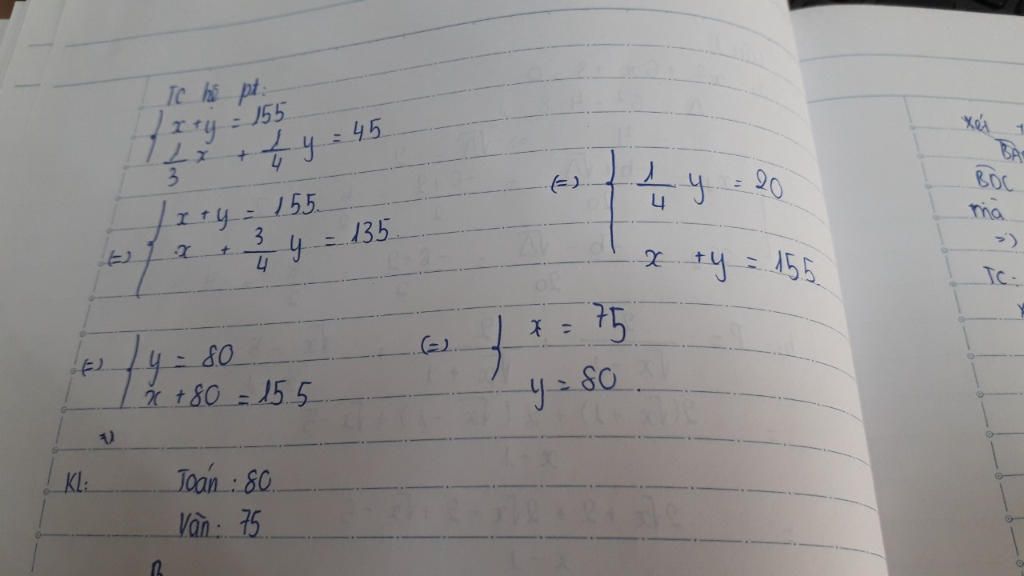 TC hệ pt:
{ x + y = 155
1/3 x + 1/4 y = 45
(=) { x + y = 155
x + 3/4 y = 135
(=) { 1/4 y = 20
x + y = 155
(=) { y = 80
x + 80 = 155
(=) { x = 75
y = 80.
KL: Toán: 80
Văn: 75
xét
BDC
mà
=)
TC: